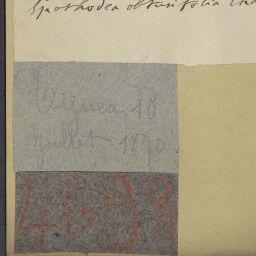 Spathodea obtusifolia
18
Juillet 1870
4698